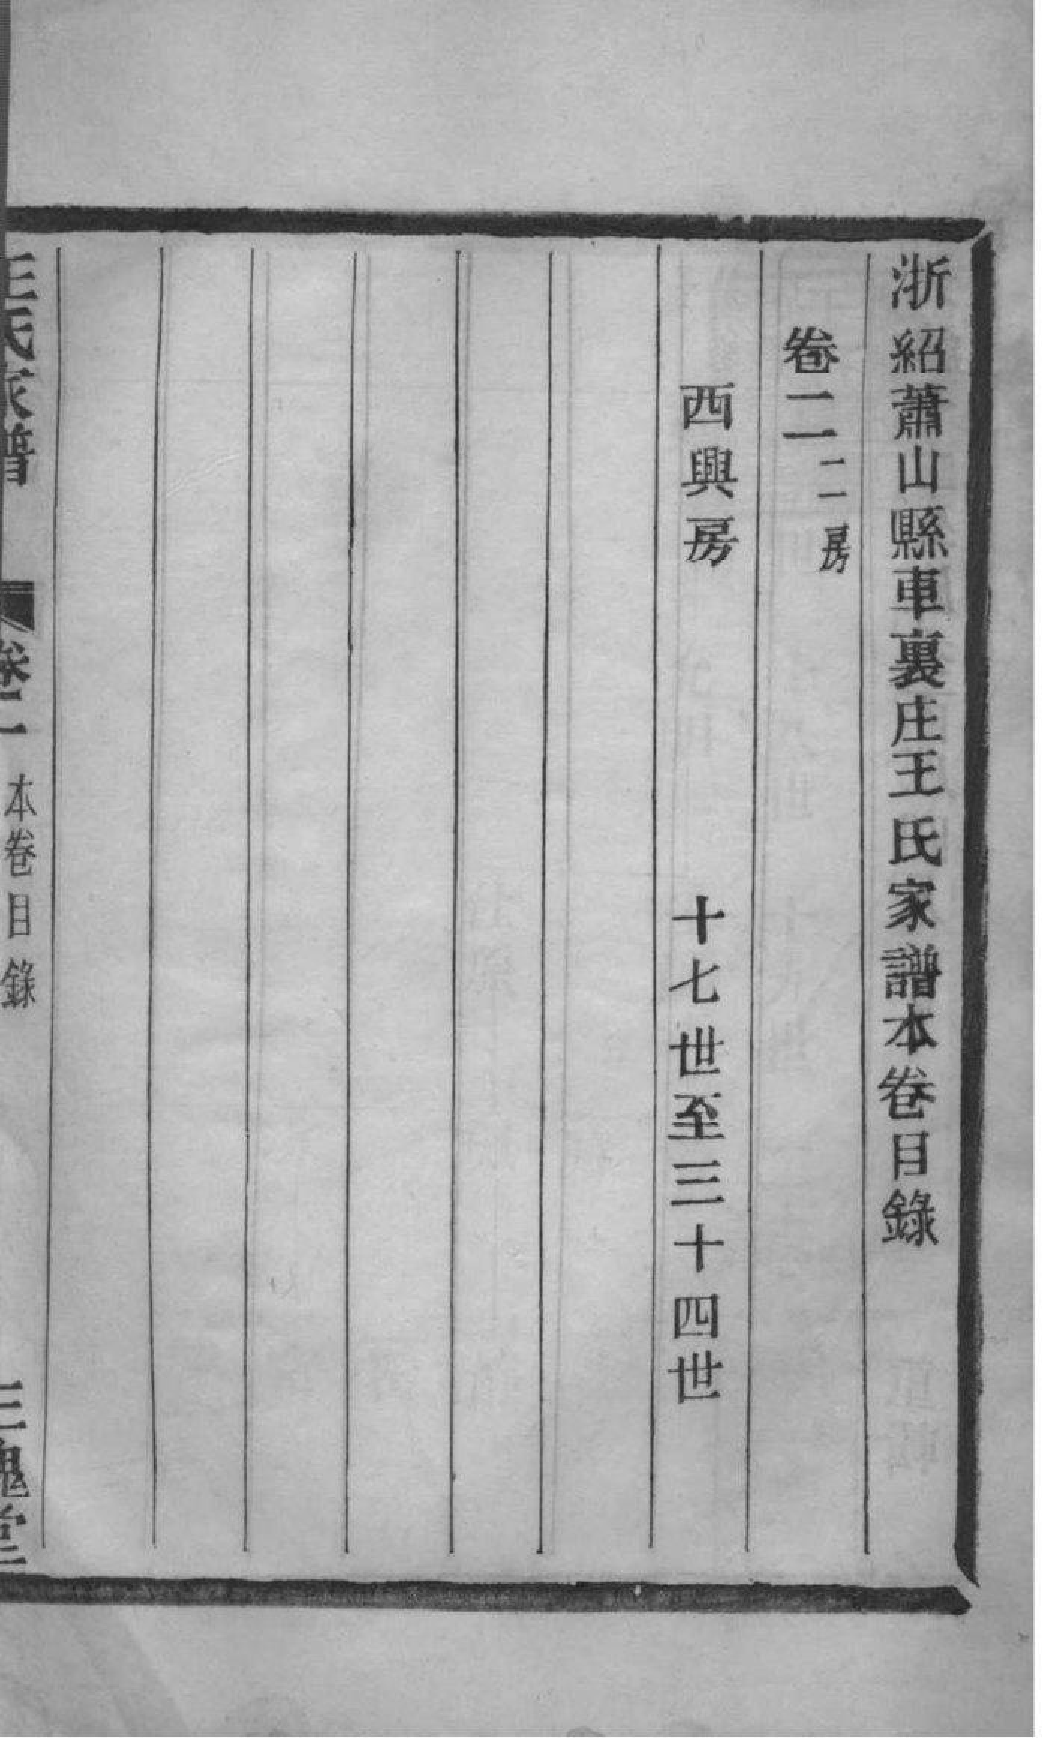 浙紹蕭山縣車裏庄王氏家譜本卷目錄
卷二 二房
西興房 十七世至三十四世
王氏家譜 卷二 本卷目錄 三槐堂